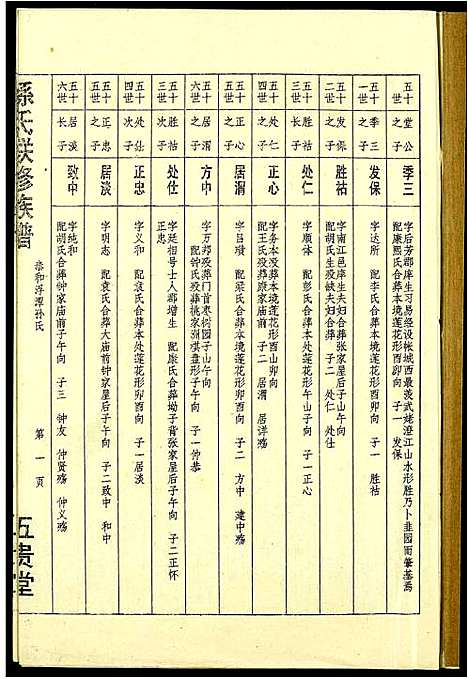 五十世 堂公之子 季三 字后芳郡庠生习易经设帐城西最羡武姥澄江山水形胜乃卜韭园而肇基焉
配康熙氏合葬本境莲花形酉卯向 子一 发保
五十一世 季三之子 发保 字达所 配李氏合葬本境莲花形酉卯向 子一 胜祜
五十二世 发保之子 胜祜 字南江邑庠生夫妇合葬张家屋后子山午向
配胡氏生没缺夫妇合葬 子二 处仁 处仕
五十三世 胜祜长子 处仁 字顺斋 配彭氏合葬本境莲花形午山子向 子一正心
五十四世 处仁之子 正心 字务本没葬本境莲花形酉山卯向
配王氏没葬康家庙前 子二 居渭 居洋殇
五十五世 正心之子 居渭 字吕璜 配梁氏合葬本境莲花形酉卯向 子二 方中 建中殇
五十六世 居渭之子 方中 字万邦没葬门首枣树园子山午向
配钟氏没葬桃家洲棋盘形子午向 子一仲恭
五十三世 胜祜次子 处仕 字廷相号士人郡增生 配康氏合葬坳子背张家屋后子午向 子二正怀
正忠
五十四世 处仕次子 正忠 字义和 配袁氏合葬本处莲花形卯酉向 子一居淡
五十五世 正忠之子 居淡 字明志 配袁氏合葬大庙前钟家屋后子午向 子二致中 和中
五十六世 居淡长子 致中 字纯和
配胡氏合葬钟家庙前子午向 子三 钟友 仲贤殇 仲义殇
孙氏联修族谱
泰和浮潭孙氏
第一页
五贵堂